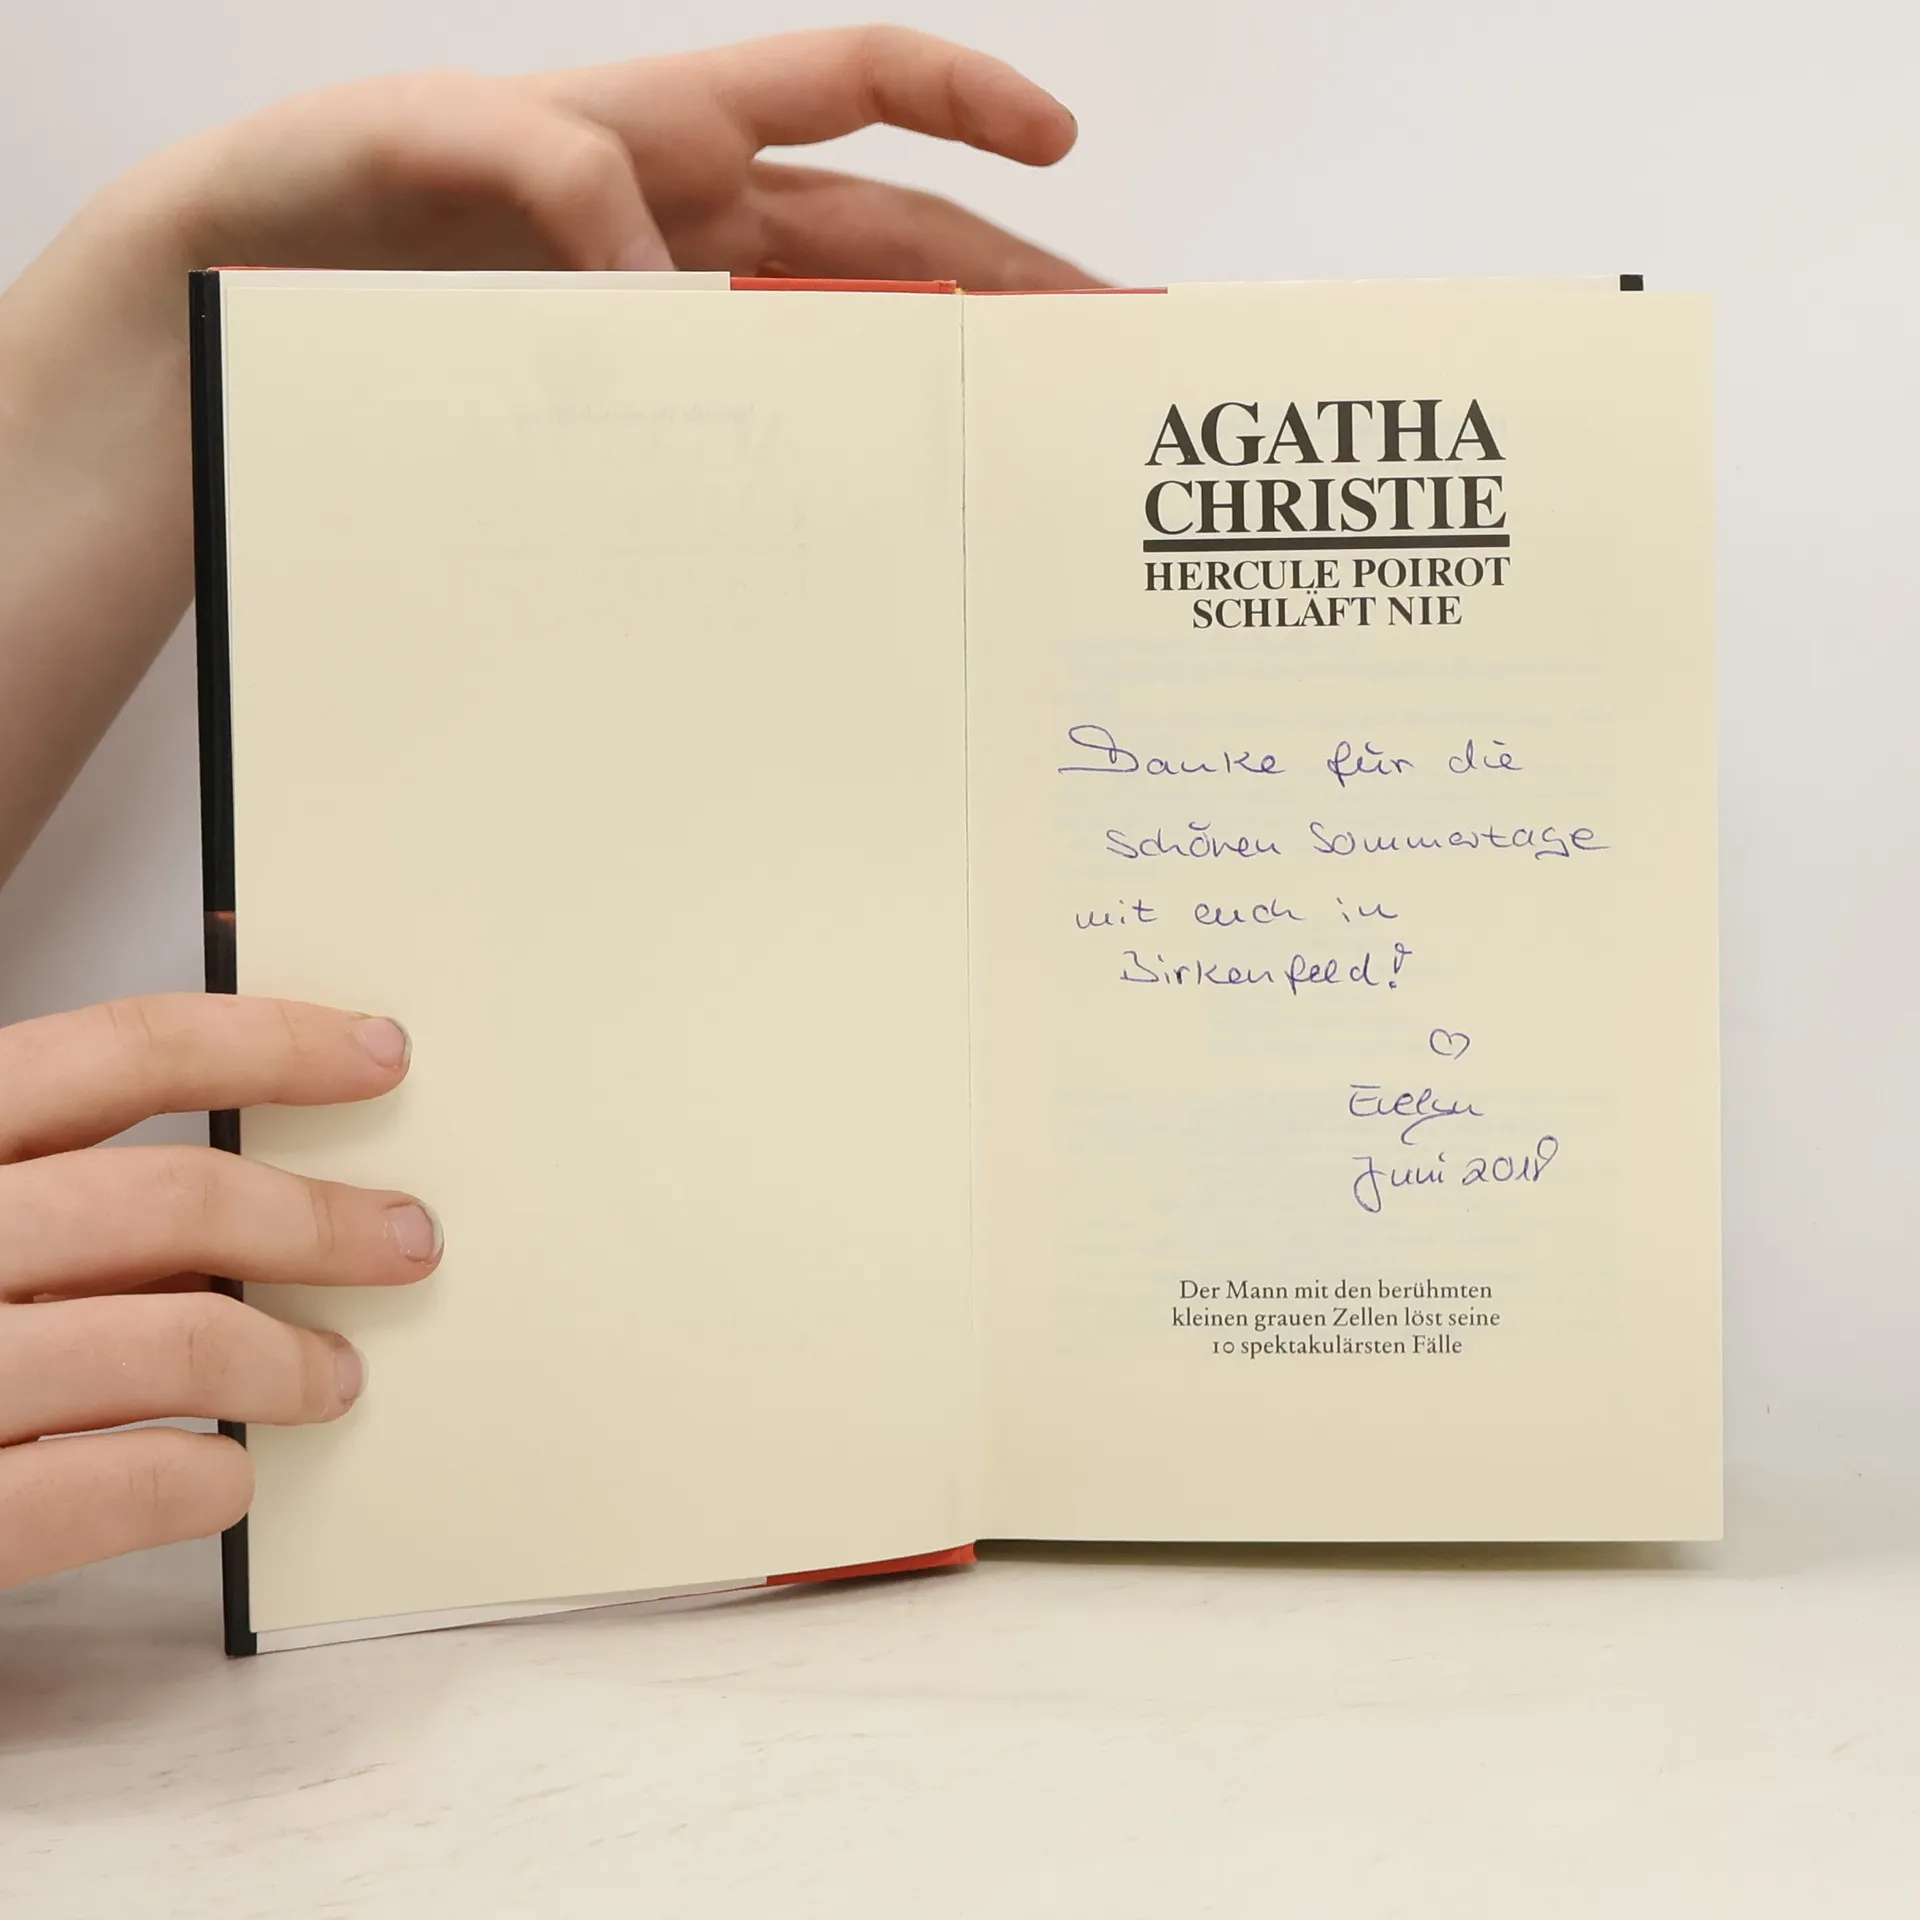 AGATHA
CHRISTIE
HERCULE POIROT
SCHLÄFT NIE
Danke für die
schönen Sommertage
mit euch in
Birkenfeld!
♡
Evelyn
Juni 2018
Der Mann mit den berühmten
kleinen grauen Zellen löst seine
10 spektakulärsten Fälle